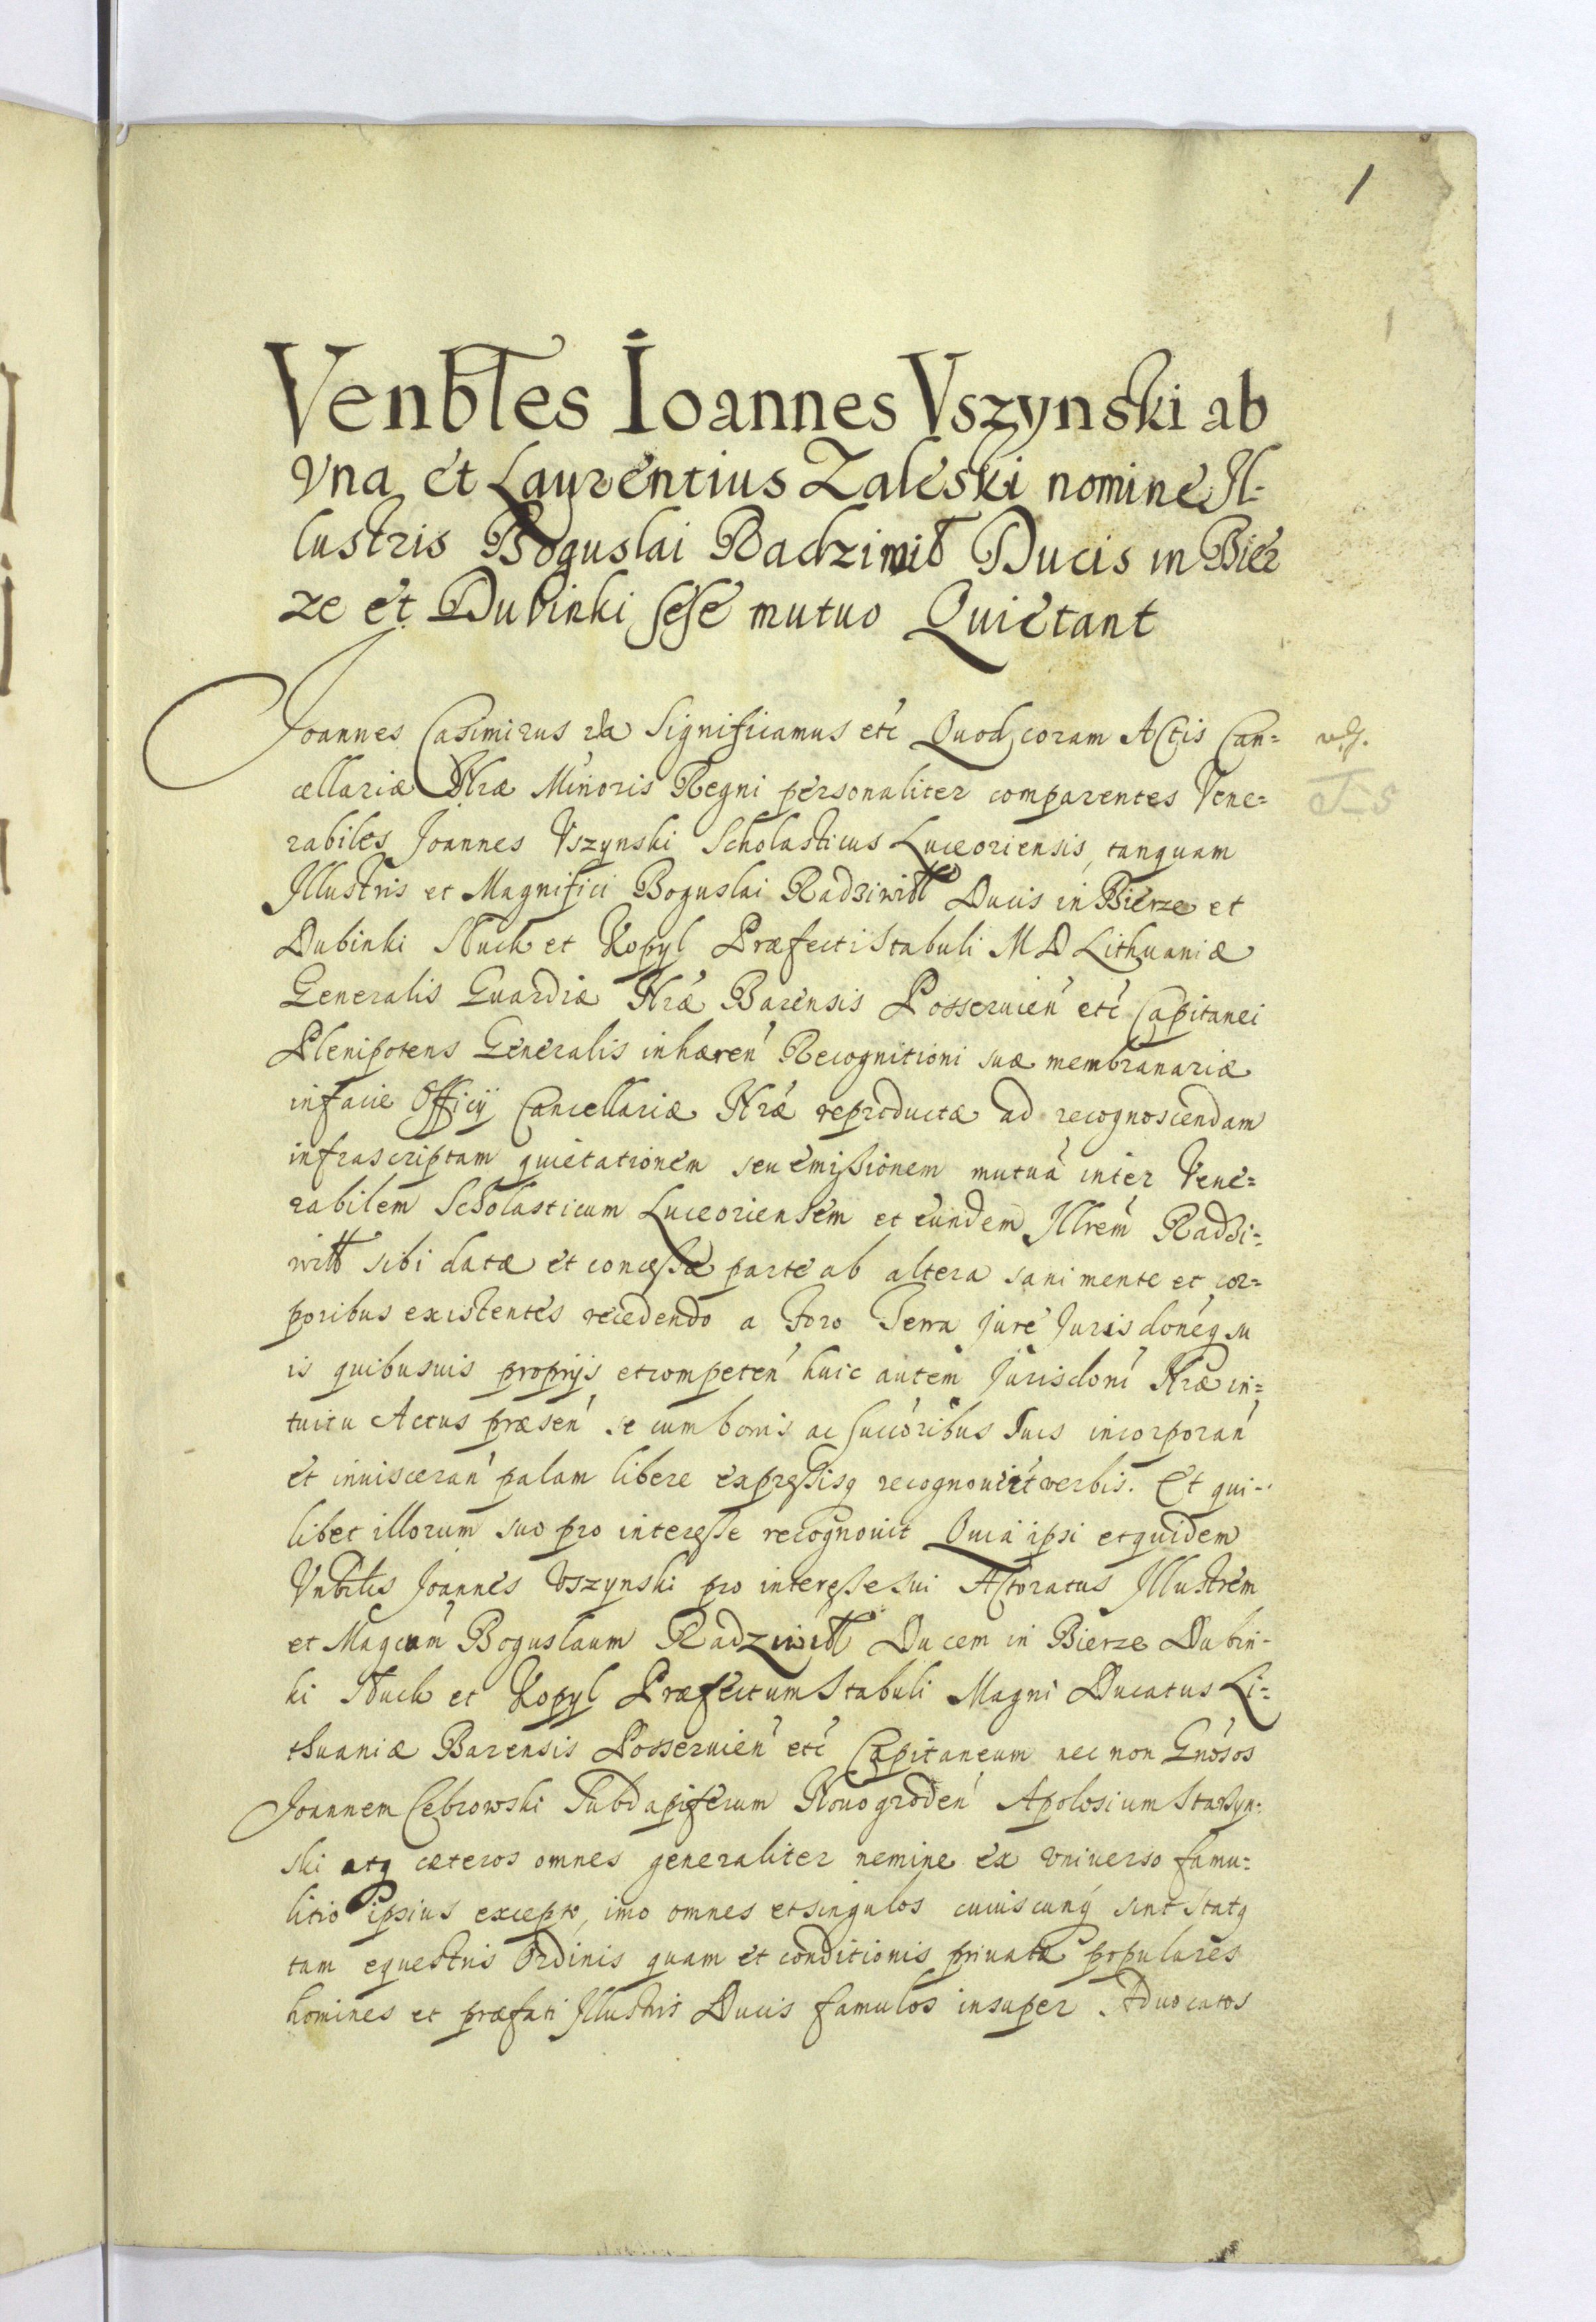 1
Venbles Ioannes Vszynski ab
vna et Laurentius Zaleski nomine Il-
lustris Boguslai Radziwił Ducis in Bier
ze et Dubinki sese mutuo Quietant
Joannes Casimirus Significamus etc Quod coram Actis Can=
cellariæ Nræ Minoris Regni personaliter comparentes Vene=
rabiles Joannes Vszynski Scholasticus Luceoriensis, tanquam
Illustris et Magnifici Boguslai Radziwiłł Ducis in Bierze et
Dubinki Słuck et Kopyl Præfecti Stabuli M D Lithuaniæ
Generalis Guardiæ Nræ Barensis Posseruien etc Capitanei
Plenipotens Generalis inhæren Recognitioni suæ membranariæ
in facie Officij Cancellariæ Nræ reproductæ ad recognoscendam
infrascriptam quietationem seu emissionem mutuã inter Vene=
rabilem Scholasticum Luceoriensem et eundem Illrem Radzi=
wiłł sibi datæ et concessæ parte ab altera sani mente et cor=
poribus existentes recedendo a Foro Terra jure Jurisdoneq su
is quibusuis proprijs et competen huic autem Jurisdoni Nræ in=
tuitu Actus præsen se cum bonis ac succoribus suis incorporan
et inuisceran palam libere expressisq recognouert verbis. Et qui-
libet illorum suo pro interesse recognouit Quia ipsi et quidem
Vnbilis Joannes Vszynski pro interesse sui Actoratus Illustrem
et Magcum Boguslaum Radziwiłł Ducem in Bierze Dubin-
ki Słuck et Kopyl Præfectum Stabuli Magni Ducatus Li=
thuaniæ Barensis Posseruien etc Capitaneum nec non Gnosos
Joannem Cebrowski Subdapiferum Nouogroden Apolosium
ski atq cæteros omnes generaliter nemine ex vniuerso famu=
litio ipsius excepto, imo omnes et singulos cuiuscunq sint statq
tam equestris Ordinis quam et conditionis priuatæ populares
homines et præfati Illustris Ducis famulos insuper Aduocatos